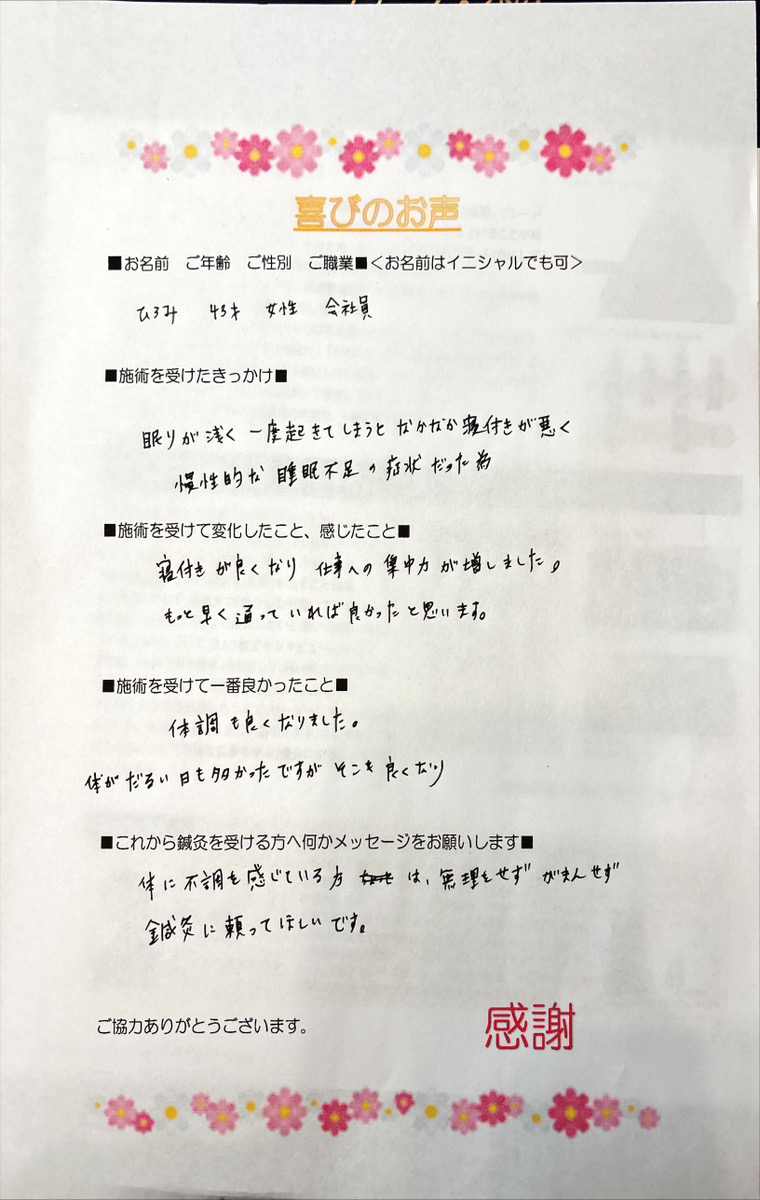 喜びのお声
■お名前 ご年齢 ご性別 ご職業■＜お名前はイニシャルでも可＞
ひろみ 43才 女性 会社員
■施術を受けたきっかけ■
眠りが浅く 一度起きてしまうと なかなか寝付きが悪く
慢性的な 睡眠不足の症状だった為
■施術を受けて変化したこと、感じたこと■
寝付きが良くなり 仕事への集中力が増しました。
もっと早く通っていれば良かったと思います。
■施術を受けて一番良かったこと■
体調も良くなりました。
体がだるい日も多かったですが そこも良くなり
■これから鍼灸を受ける方へ何かメッセージをお願いします■
体に不調を感じている方 は、無理をせず がまんせず
鍼灸に頼ってほしいです。
ご協力ありがとうございます。
感謝